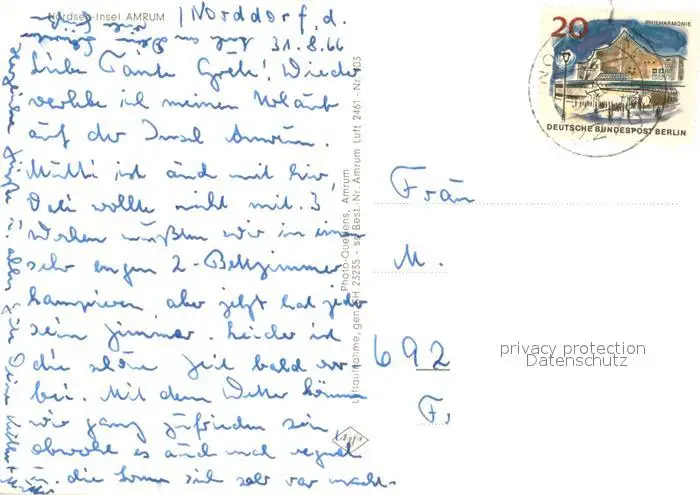 Nordsee-Insel AMRUM
Norddorf, d.
31.8.66
Liebe Tante Grete! Wieder
verlebe ich meinen Urlaub
auf der Insel Amrum.
Mutti ist auch mit hier,
Vati wollte nicht mit. 3
Wochen mußten wir in einem
sehr engen 2-Bettzimmer
kampieren, aber jetzt hat jeder
sein Zimmer. Leider ist
die schöne Zeit bald vor
bei. Mit dem Wetter können
wir ganz zufrieden sein,
obwohl es auch mal regnet
u. die Sonne sich sehr rar macht.
Herzliche Grüße
Photo-Quedens, Amrum
Luftaufnahme, gen. SH 23235 - se Best.-Nr. Amrum Luft 2461 - Nr. 103
Agfa
20
PHILHARMONIE
DEUTSCHE BUNDESPOST BERLIN
Frau
M.
692
F.
privacy protection
Datenschutz